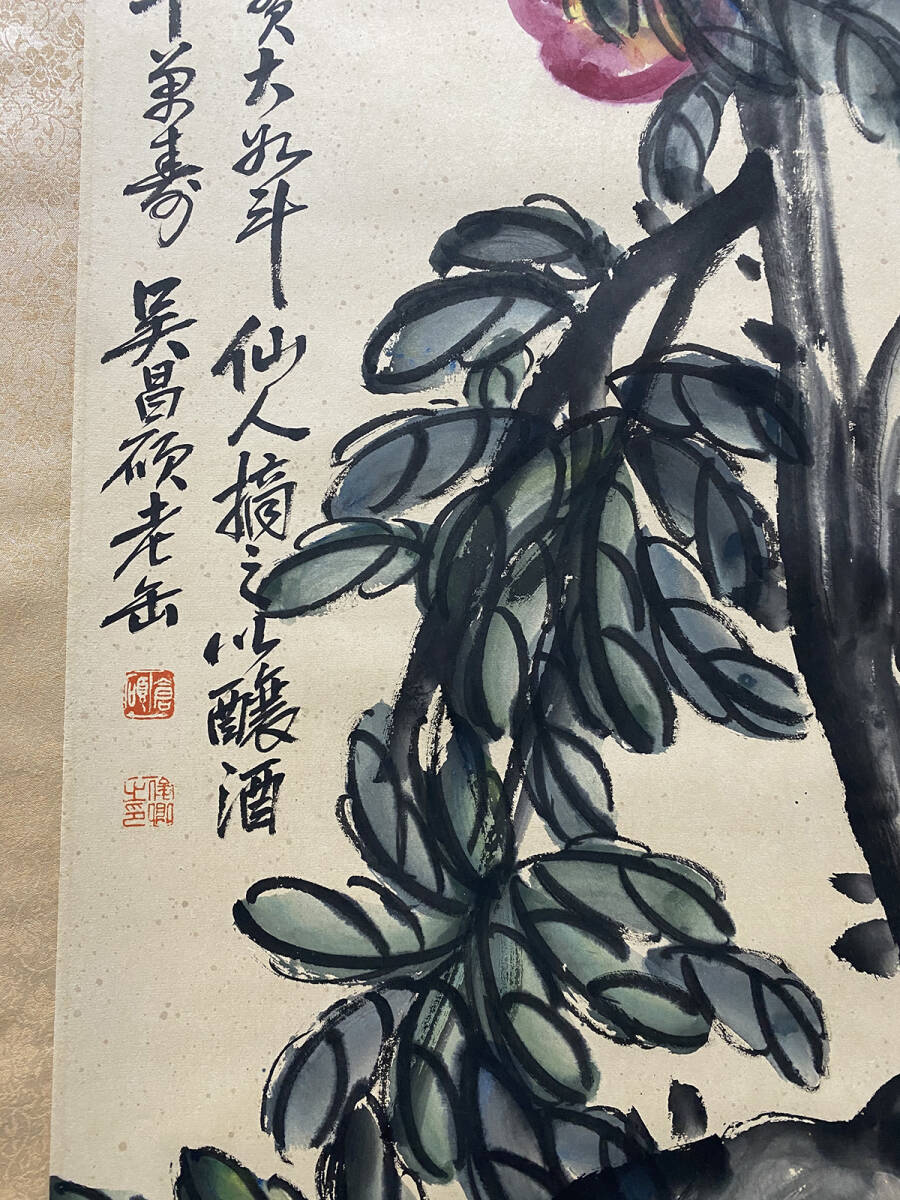 實大如斗仙人摘之以釀酒
千萬壽吳昌碩老缶
倉碩
俊卿之印